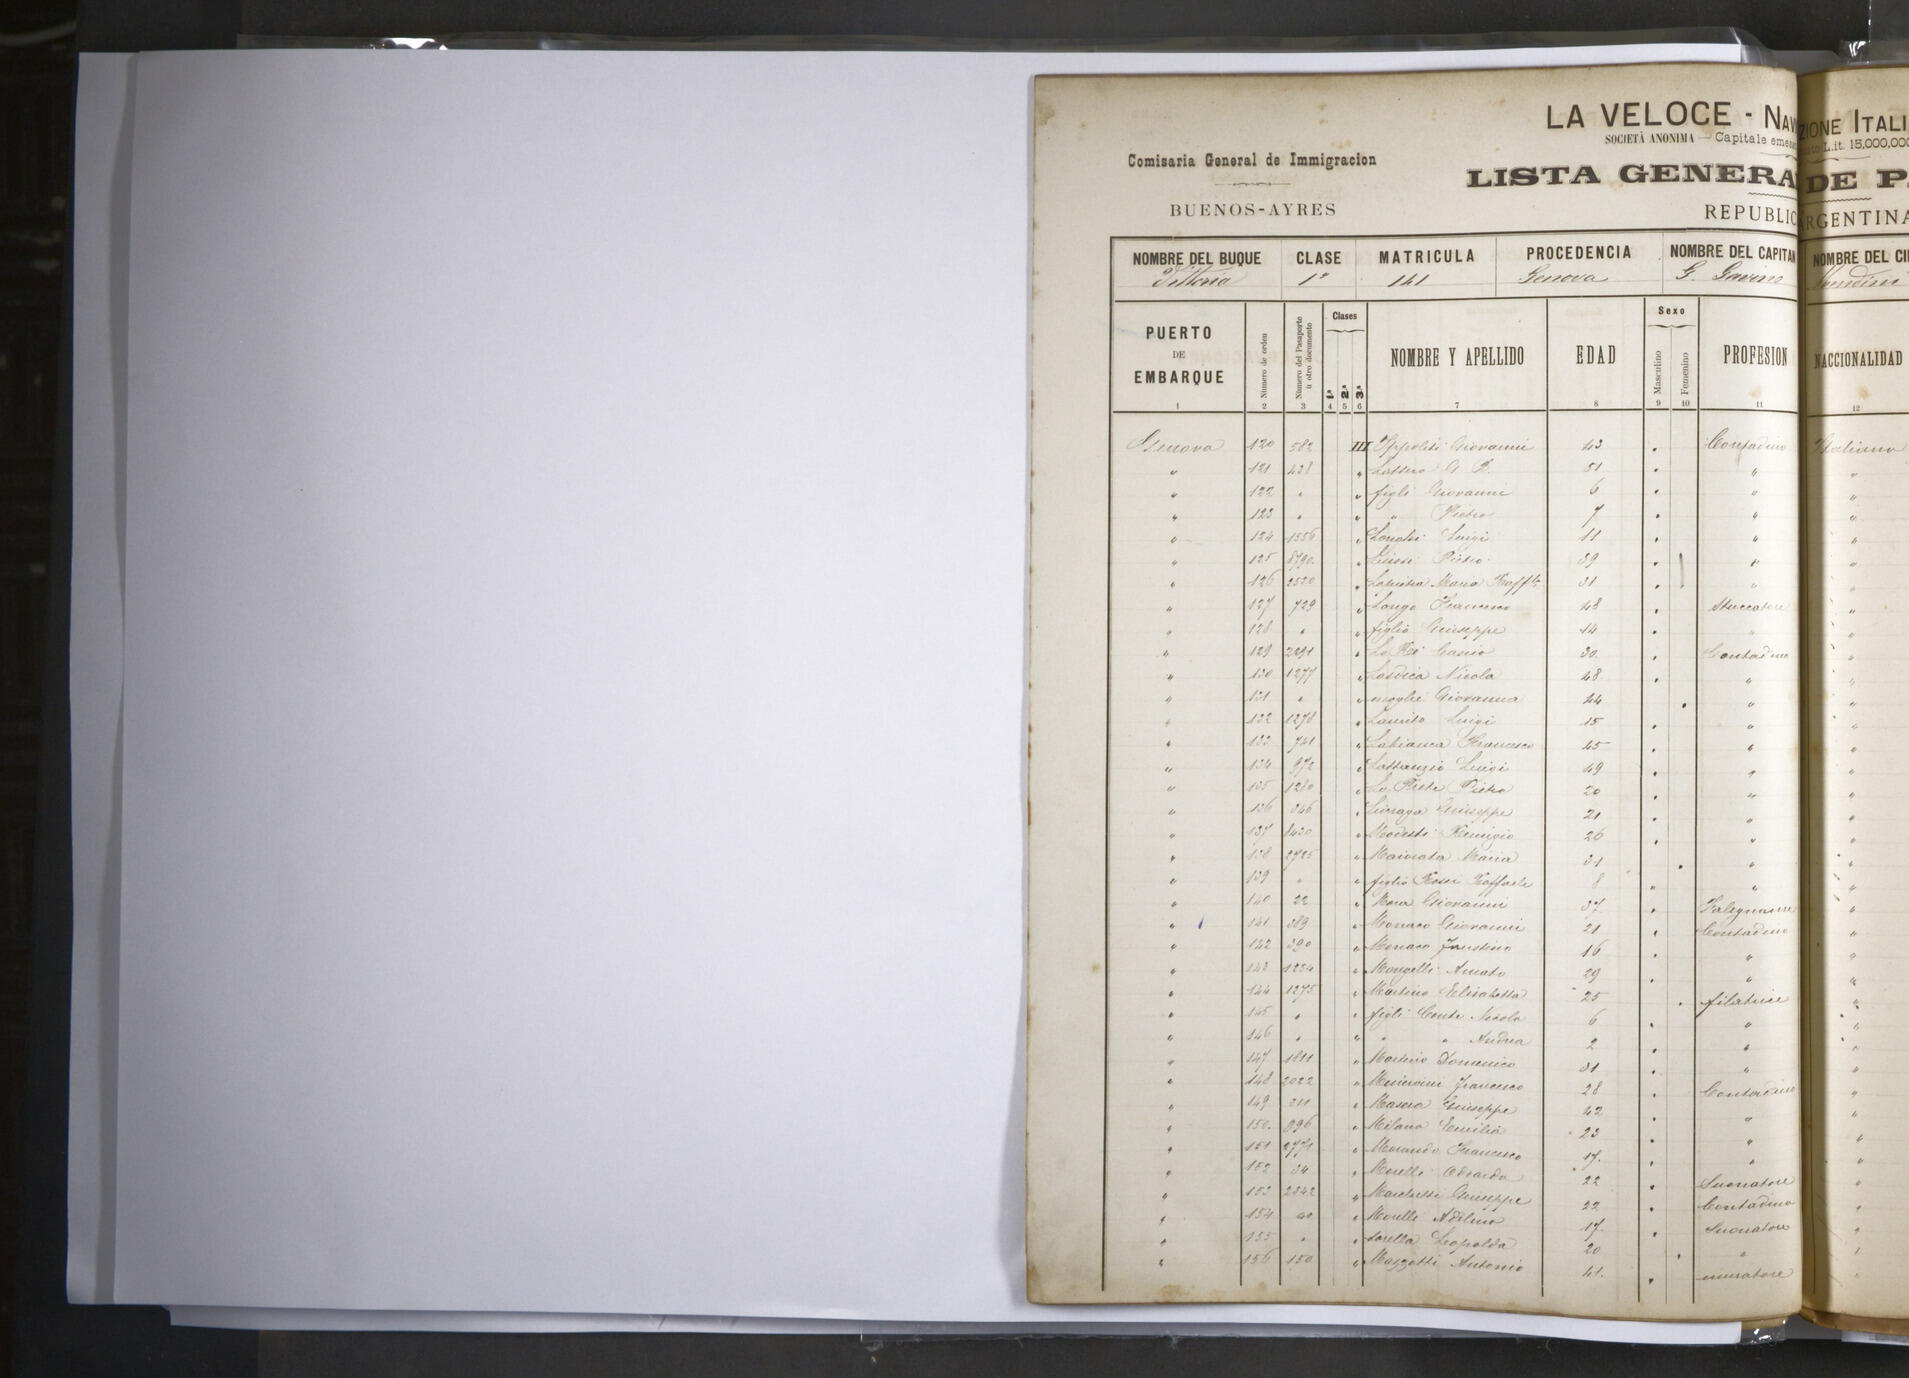 LA VELOCE - NAVI ZIONE ITALI
SOCIETÀ ANONIMA — Capitale emesso L.it. 15,000,000
Comisaria General de Immigracion
LISTA GENERA DE PA
BUENOS-AYRES
REPUBLIC ARGENTINA
NOMBRE DEL BUQUE CLASE MATRICULA PROCEDENCIA NOMBRE DEL CAPITAN NOMBRE DEL CI
Vittoria 1ª 141 Genova G. Gavino
PUERTO DE EMBARQUE Número de orden Número del Pasaporte ú otro documento Clases 1ª 2ª 3ª NOMBRE Y APELLIDO EDAD Sexo Masculino Femenino PROFESION NACCIONALIDAD
1 2 3 4 5 6 7 8 9 10 11 12
Genova 120 582 III Ippoliti Giovanni 43 Contadino Italiana
" 121 438 " G. B. 51 " "
" 122 " " figli Giovanni 6 " "
" 123 " " " Pietro 7 " "
" 124 1556 " Luigi 11 " "
" 125 8790 " Pietro 39 " "
" 126 2520 " Maria 31 "
" 127 729 " Longo Francesco 48 Stuccatore "
" 128 " " figlio Giuseppe 14 " "
" 129 2291 " Lo Re 30 Contadino "
" 130 1277 " Nicola 48 " "
" 131 " " moglie Giovanna 44 " "
" 132 1278 " Laurito Luigi 15 " "
" 133 741 " Labianca Francesco 45 " "
" 134 972 " Lattanzio Luigi 49 " "
" 135 1280 " Lo Prete Pietro 20 " "
" 136 346 " Giuseppe 21 " "
" 137 8430 " Modesti Remigio 26 " "
" 138 2725 " Maiorata Maria 31 " "
" 139 " " figlio Rossi Raffaele 8 " "
" 140 22 " Giovanni 37 Falegname "
" 141 389 " Monaco Giovanni 21 Contadino "
" 142 390 " Monaco Faustino 16 " "
" 143 1234 " Mongelli Amato 29 " "
" 144 1275 " Martino Elisabetta 25 filatrice "
" 145 " " figli Conte Nicola 6 " "
" 146 " " " " Andrea 2 " "
" 147 1811 " Martino Domenico 31 " "
" 148 2022 " Francesco 28 Contadino "
" 149 311 " Masera Giuseppe 42 " "
" 150 896 " Milano Emilio 23 " "
" 151 2771 " Morando Francesco 17 " "
" 152 34 " Morelli Edoardo 22 Suonatore "
" 153 2342 " Marchetti Giuseppe 22 Contadino "
" 154 40 " Morelli Adelino 17 Suonatore "
" 155 " " sorella Leopolda 20 " "
" 156 150 " Mazzotti Antonio 41 muratore "